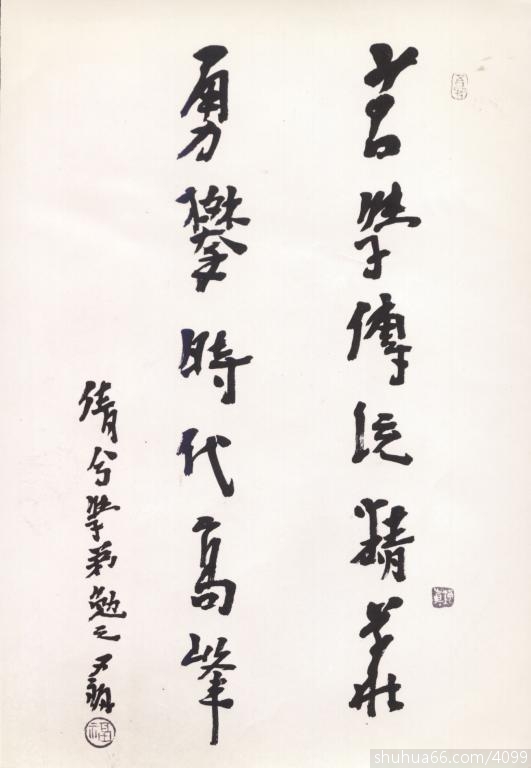 苦學傳统精華
勇攀時代高峰
倩兮學弟勉之
shuhua66.com/4099